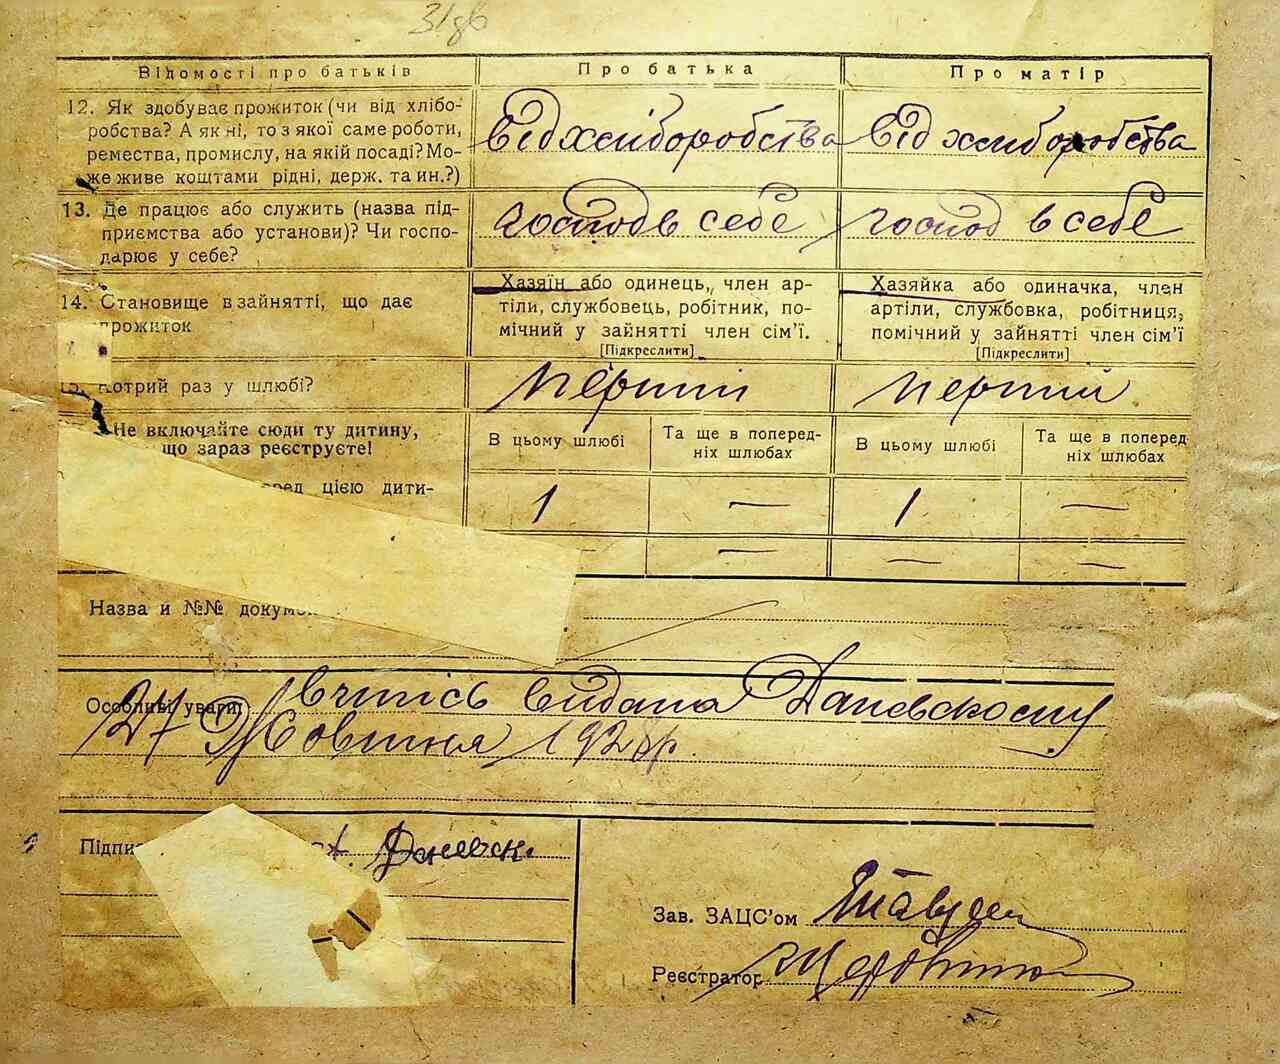 Відомості про батьків
Про батька
Про матір
12. Як здобуває прожиток (чи від хлібо-
робства? А як ні, то з якої саме роботи,
ремества, промислу, на якій посаді? Мо-
же живе коштами рідні, держ. та ин.?)
Від хліборобства
Від хліборобства
13. Де працює або служить (назва під-
приємства або установи)? Чи госпо-
дарює у себе?
господ в себе
господ в себе
14. Становище в зайнятті, що дає
прожиток
Хазяїн або одинець, член ар-
тіли, службовець, робітник, по-
мічний у зайнятті член сім'ї.
[Підкреслити]
Хазяйка або одиначка, член
артіли, службовка, робітниця,
помічний у зайнятті член сім'ї
[Підкреслити]
15. Котрий раз у шлюбі?
перший
перший
Не включайте сюди ту дитину,
що зараз реєструєте!
В цьому шлюбі
Та ще в поперед-
ніх шлюбах
В цьому шлюбі
Та ще в поперед
ніх шлюбах
цією дити-
1 — 1 —
— — —
Назва и №№ докум
Особливі уваги:
видана Даневскому
27 Жовтня 192
Підпи
Даневск.
Зав. ЗАЦС'ом
Реєстратор